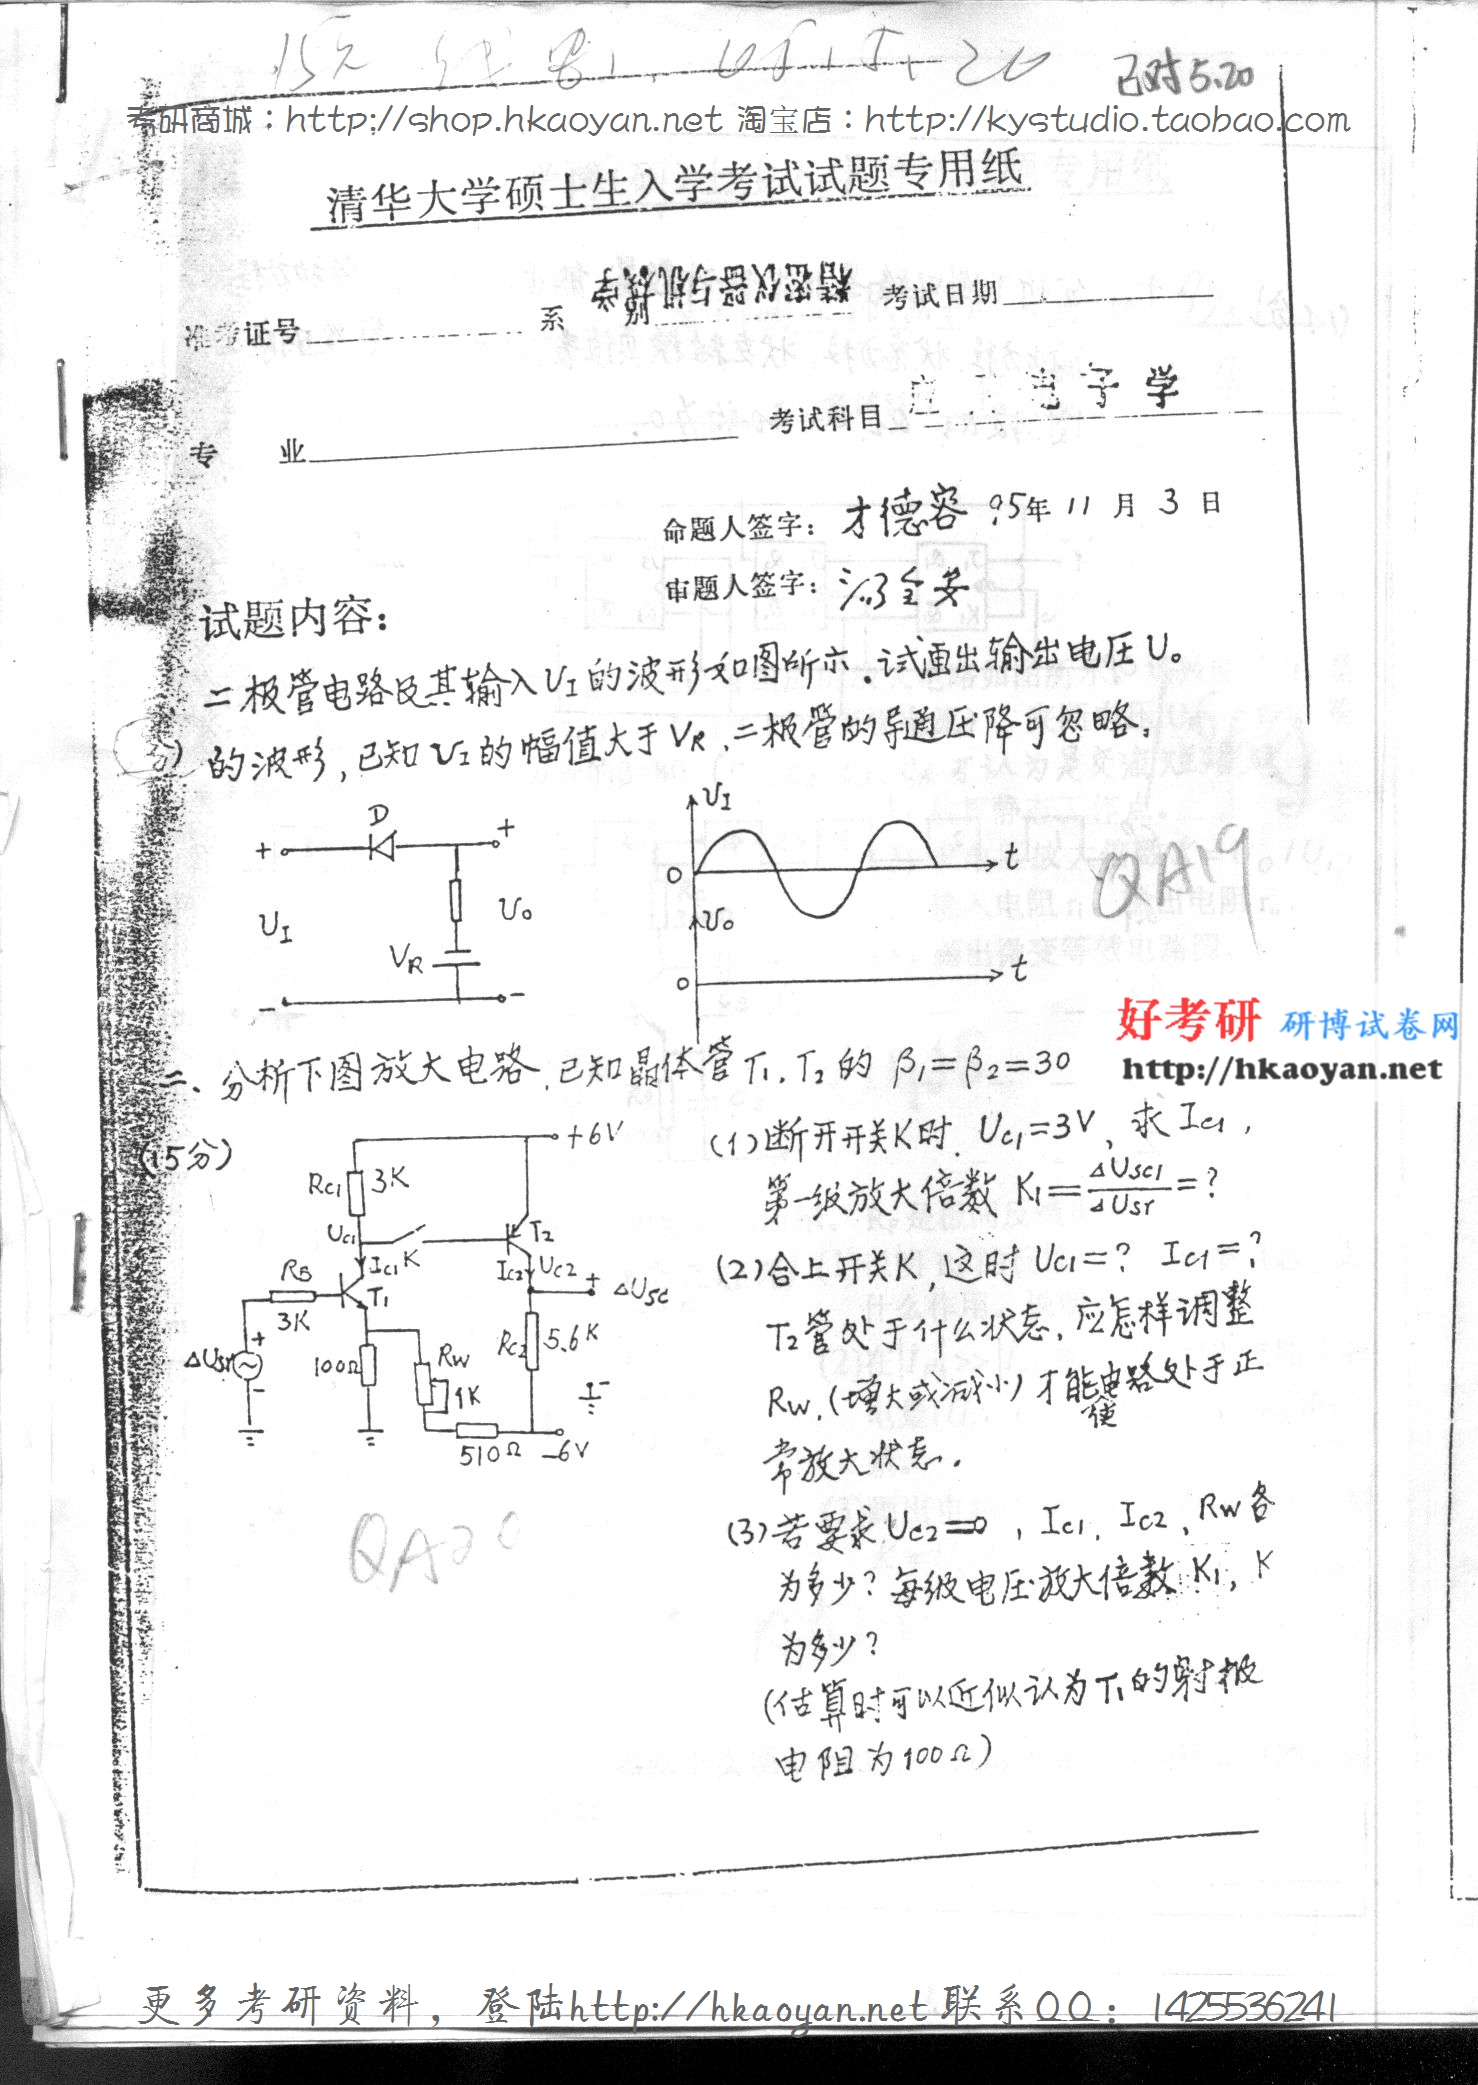 已对5.20
考研商城：http://shop.hkaoyan.net 淘宝店：http://kystudio.taobao.com
清华大学硕士生入学考试试题专用纸
准考证号 系 别 精密仪器与机械学 考试日期
专 业 考试科目 电子学
命题人签字： 才德容 95年11月3日
审题人签字：
试题内容：
二极管电路及其输入UI的波形如图所示，试画出输出电压Uo
分）的波形，已知UI的幅值大于VR，二极管的导通压降可忽略。
D
+ +
UI Uo
VR
- -
UI
0 t
Uo
0 t
QA19
好考研 研博试卷网
http://hkaoyan.net
二、分析下图放大电路，已知晶体管T1，T2的 β1=β2=30
(15分)
+6V
Rc1 3K
Uc1
Ic1 K
T2
Ic2 Uc2
+ ΔUsc
Rs
3K
T1
ΔUsr
+
-
100Ω
Rw
1K
Rc2 5.6K
510Ω
-6V
QA20
(1)断开开关K时，Uc1=3V，求Ic1，
第一级放大倍数 K1=ΔUsc1/ΔUsr=？
(2)合上开关K，这时Uc1=？ Ic1=？
T2管处于什么状态，应怎样调整
Rw，(增大或减小)才能使电路处于正
常放大状态。
(3)若要求Uc2=0，Ic1，Ic2，Rw各
为多少？每级电压放大倍数K1，K
为多少？
(估算时可以近似认为T1的射极
电阻为100Ω)
更多考研资料，登陆http://hkaoyan.net联系QQ：1425536241